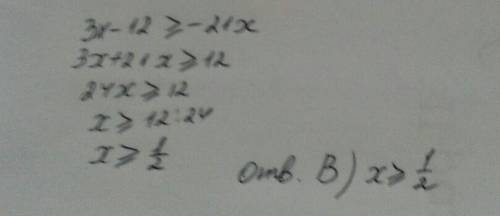 3x - 12 ≥ -21x
3x+21x ≥ 12
24x ≥ 12
x ≥ 12:24
x ≥ 1/2
Отв. В) x ≥ 1/2